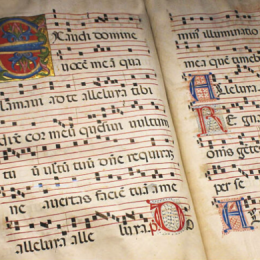 Exaudi domine
uocē mea qua
clamaui ad te allelura tibi
dixit cor meū quesiui uultum
tuū uultū tuū dñe requiraz
ne auertas faciē tuā a me
allelura alle lura. p̄s D
mīs illuminatio
mea quē timebo
Allelura.
Regna
omīs gēte
per se
A